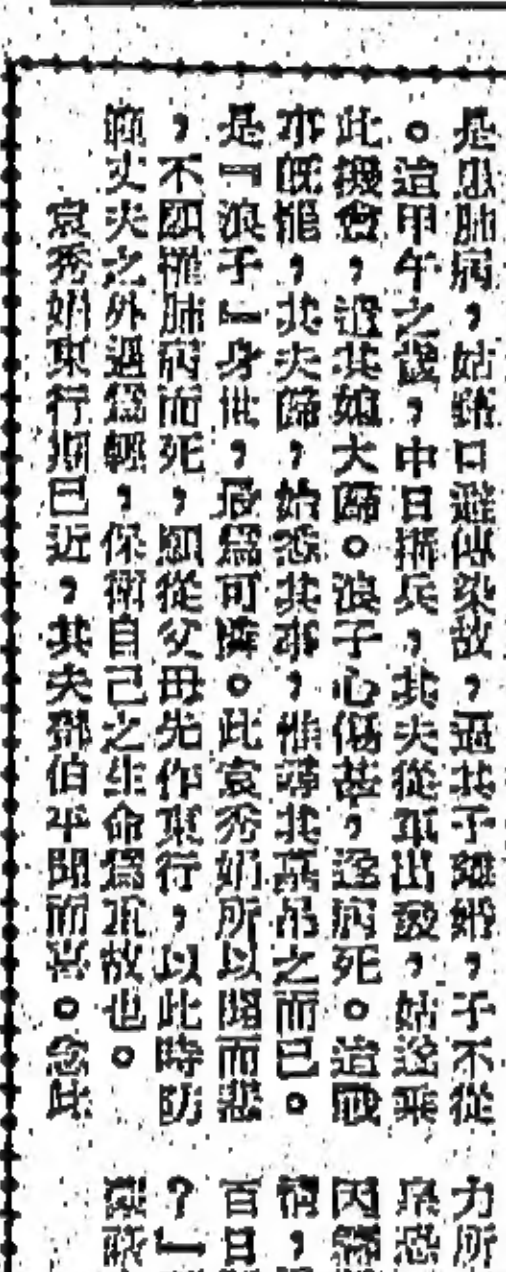 是患肺病，姑藉口避傳染故，逼其子離婚，子不從
。迨甲午之歲，中日搆兵，其夫從軍出發，姑遂乘
此機會，逼其媳大歸。浪子心傷甚，遂病死。迨戰
事既罷，其夫歸，始悉其事，惟尋其墓吊之而已。
是『浪子』身世，最爲可憐。此袁秀娟所以閱而悲
，不願罹肺病而死，願從父母先作東行，以此時防
範丈夫之外遇爲輕，保衛自己之生命爲重故也。
袁秀娟東行期已近，其夫鄧伯平聞而喜。念此
力所
恐
因
，
百日
？」